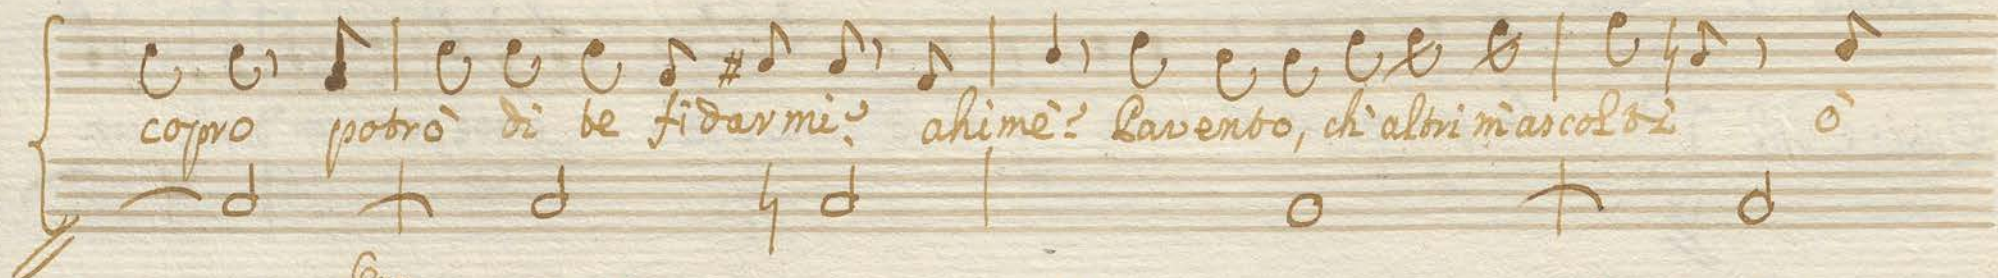 copro potrò di te fidarmi? ahimè? Pavento, ch'altri m'ascolti ò